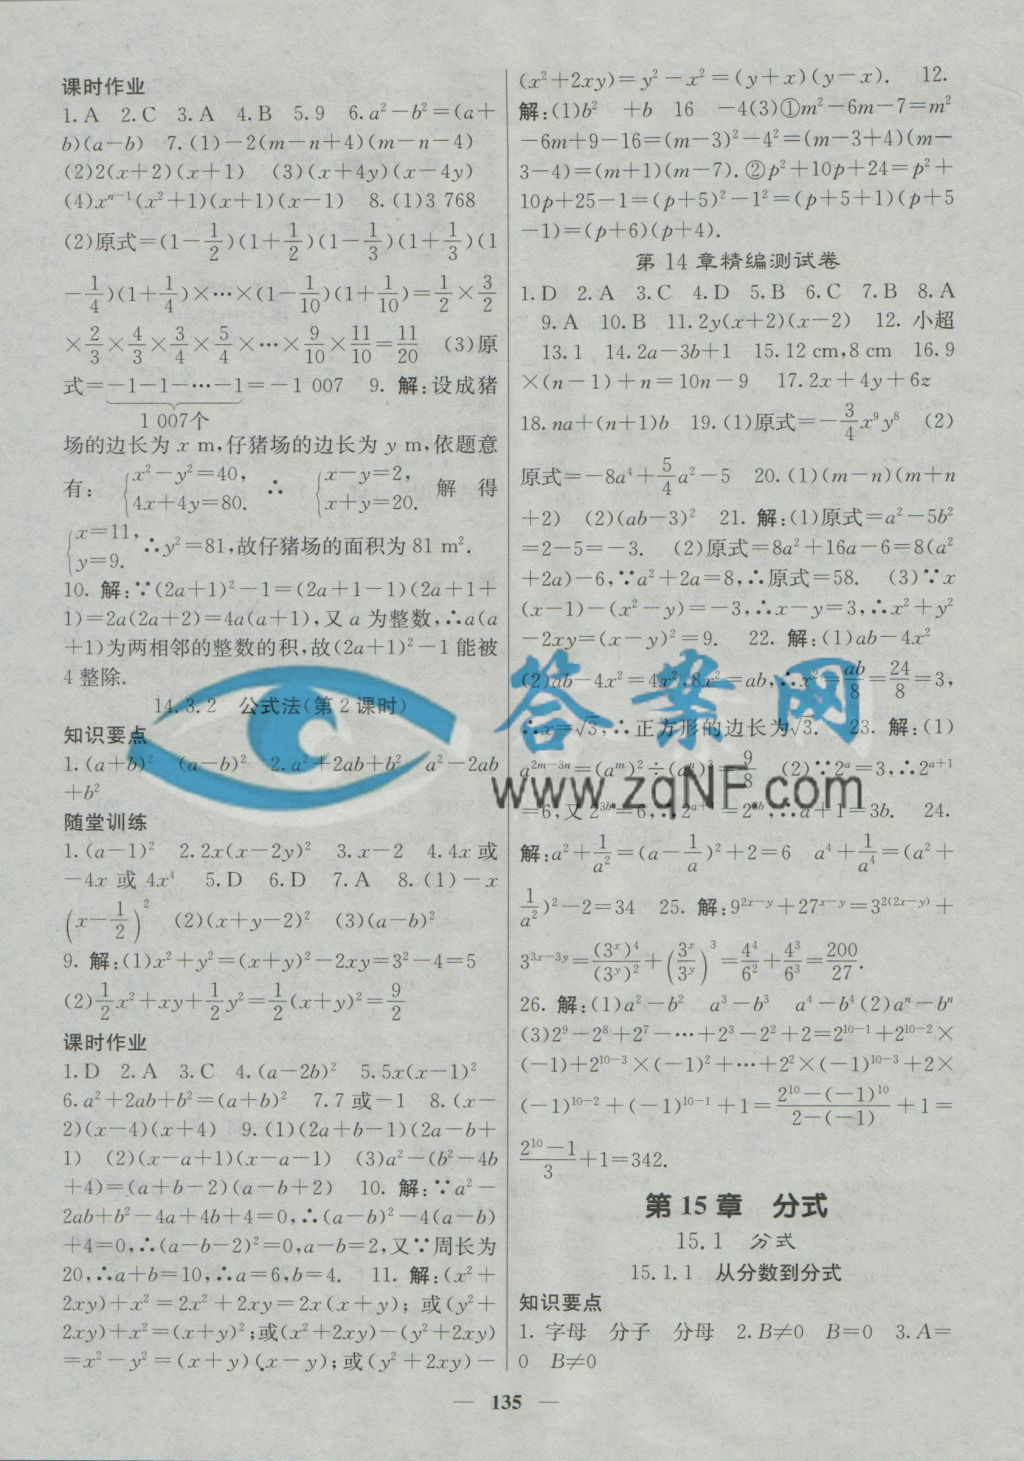 课时作业
1.A 2.C 3.A 4.B 5.9 6.a²-b²=(a+
b)(a-b) 7.(1)-2(m-n+4)(m-n-4)
(2)2(x+2)(x+1) (3)(x+4y)(x-4y)
(4)xⁿ⁻¹(x²+1)(x+1)(x-1) 8.(1)3 768
(2)原式=(1-1/2)(1+1/2)(1-1/3)(1+1/3)(1
-1/4)(1+1/4)×…×(1-1/10)(1+1/10)=1/2×3/2
×2/3×4/3×3/4×5/4×…×9/10×11/10=11/20 (3)原
式=-1-1-…-1=-1 007 9. 解:设成猪
1 007个
场的边长为 x m,仔猪场的边长为 y m,依题意
有: {x²-y²=40, 4x+4y=80. ∴ {x-y=2, x+y=20. 解 得
{x=11, y=9. ∴y²=81,故仔猪场的面积为 81 m².
10. 解:∵(2a+1)²-1=(2a+1-1)(2a+1+
1)=2a(2a+2)=4a(a+1),又 a 为整数,∴a(a
+1)为两相邻的整数的积,故(2a+1)²-1 能被
4 整除.
14.3.2 公式法(第 2 课时)
知识要点
1.(a+b)² (a-b)² 2.a²+2ab+b² a²-2ab
+b²
随堂训练
1.(a-1)² 2.2x(x-2y)² 3.x-2 4.4x 或
-4x 或 4x⁴ 5.D 6.D 7.A 8.(1)-x
(x-1/2)² (2)(x+y-2)² (3)(a-b)²
9. 解:(1)x²+y²=(x+y)²-2xy=3²-4=5
(2)1/2x²+xy+1/2y²=1/2(x+y)²=9/2
课时作业
1.D 2.A 3.C 4.(a-2b)² 5.5x(x-1)²
6.a²+2ab+b²=(a+b)² 7.7 或-1 8.(x-
2)(x-4)(x+4) 9.(1)(2a+b-1)(2a-b+
1) (2)(x-a+1)(x-a-1) (3)a²-(b²-4b
+4)=(a+b-2)(a-b+2) 10. 解:∵a²-
2ab+b²-4a+4b+4=0,∴(a-b)²-4(a-b)
+4=0,∴(a-b-2)²=0,a-b=2,又∵周长为
20,∴a+b=10,∴a=6,b=4. 11. 解:(x²+
2xy)+x²=2x²+2xy=2x(x+y); 或(y²+
2xy)+x²=(x+y)²;或(x²+2xy)-(y²+2xy)
=x²-y²=(x+y)(x-y);或(y²+2xy)-
(x²+2xy)=y²-x²=(y+x)(y-x). 12.
解:(1)b² +b 16 -4(3)①m²-6m-7=m²
-6m+9-16=(m-3)²-4²=(m-3+4)(m-
3-4)=(m+1)(m-7). ②p²+10p+24=p²+
10p+25-1=(p+5)²-1²=(p+5+1)(p+5
-1)=(p+6)(p+4).
第 14 章精编测试卷
1.D 2.A 3.C 4.D 5.B 6.C 7.B 8.A
9.A 10.B 11.2y(x+2)(x-2) 12. 小超
13.1 14.2a-3b+1 15.12 cm,8 cm 16.9
×(n-1)+n=10n-9 17.2x+4y+6z
18.na+(n+1)b 19.(1)原式=-3/4x⁹y⁸ (2)
原式=-8a⁴+5/4a²-5 20.(1)(m-n)(m+n
+2) (2)(ab-3)² 21. 解:(1)原式=a²-5b²
=2-5=-3. (2)原式=8a²+16a-6=8(a²
+2a)-6,∵a²+2a=8,∴原式=58. (3)∵x
(x-1)-(x²-y)=-3,∴x-y=3,∴x²+y²
-2xy=(x-y)²=9. 22. 解:(1)ab-4x²
(2)ab-4x²=4x²,8x²=ab,∴x²=ab/8=24/8=3,
∴x=√3,∴正方形的边长为√3. 23. 解:(1)
a²ᵐ⁻³ⁿ=(aᵐ)²÷(aⁿ)³=9/8 (2)∵2ᵃ=3,∴2ᵃ⁺¹
=6,又2³ᵇ=6,∴2ᵃ⁺¹=2³ᵇ,∴a+1=3b. 24.
解:a²+1/a²=(a-1/a)²+2=6 a⁴+1/a⁴=(a²+
1/a²)²-2=34 25. 解:9^(2x-y)+27^(x-y)=3^(2(2x-y))+
3^(3x-3y)=(3ˣ)⁴/(3ʸ)²+(3ˣ/3ʸ)³=4⁴/6²+4³/6³=200/27.
26. 解:(1)a²-b² a³-b³ a⁴-b⁴ (2)aⁿ-bⁿ
(3)2⁹-2⁸+2⁷-…+2³-2²+2=2¹⁰⁻¹+2¹⁰⁻²×
(-1)+2¹⁰⁻³×(-1)²+…+2²×(-1)¹⁰⁻³+2×
(-1)¹⁰⁻²+(-1)¹⁰⁻¹+1=(2¹⁰-(-1)¹⁰)/(2-(-1))+1=
(2¹⁰-1)/3+1=342.
第 15 章 分式
15.1 分式
15.1.1 从分数到分式
知识要点
1. 字母 分子 分母 2.B≠0 B=0 3.A=
0 B≠0
— 135 —
答案网
www.zqNF.com